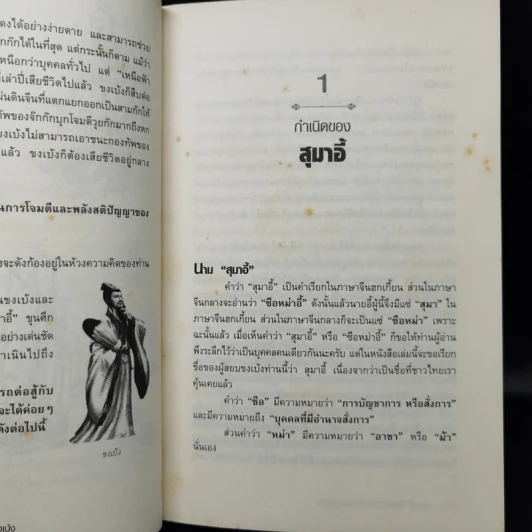 ดงได้อย่างง่ายดาย และสามารถช่วย
กก๊กได้ในที่สุด แต่กระนั้นก็ตาม แม้ว่า
เหนือกว่าบุคคลทั่วไป แต่ "เหนือฟ้า
เล่าปี่เสียชีวิตไปแล้ว ขงเบ้งก็สืบต่อ
ผ่นดินจีนที่แตกแยกออกเป็นสามก๊กให้
ทัพของจ๊กก๊กบุกโจมตีวุยก๊กมากถึงหก
ขงเบ้งไม่สามารถเอาชนะกองทัพของ
แล้ว ขงเบ้งก็ต้องเสียชีวิตอยู่กลาง
นการโจมตีและพลังสติปัญญาของ
งจะดังก้องอยู่ในห้วงความคิดของท่าน
นขงเบ้งและ
อี้" ขุนศึก
อย่างเด่นชัด
าเนินไปถึง
รถต่อสู้กับ
จะได้ค่อยๆ
ดังต่อไปนี้
ขงเบ้ง
1
กำเนิดของ
สุมาอี้
นาม "สุมาอี้"
คำว่า "สุมาอี้" เป็นคำเรียกในภาษาจีนฮกเกี้ยน ส่วนในภาษา
จีนกลางจะอ่านว่า "ซือหม่าอี้" ดังนั้นแล้วนายอี้ผู้นี้จึงมีแซ่ "สุมา" ใน
ภาษาจีนฮกเกี้ยน ส่วนในภาษาจีนกลางก็จะเป็นแซ่ "ซือหม่า" เพราะ
ฉะนั้นแล้ว เมื่อเห็นคำว่า "สุมาอี้" หรือ "ซือหม่าอี้" ก็ขอให้ท่านผู้อ่าน
พึงระลึกไว้ว่าเป็นบุคคลคนเดียวกันนะครับ แต่ในหนังสือเล่มนี้จะขอเรียก
ชื่อของผู้สยบขงเบ้งท่านนี้ว่า สุมาอี้ เนื่องจากว่าเป็นชื่อที่ชาวไทยเรา
คุ้นเคยแล้ว
คำว่า "ซือ" มีความหมายว่า "การบัญชาการ หรือสั่งการ"
และมีความหมายถึง "บุคคลที่มีอำนาจสั่งการ"
ส่วนคำว่า "หม่า" มีความหมายว่า "อาชา" หรือ "ม้า"
นั่นเอง